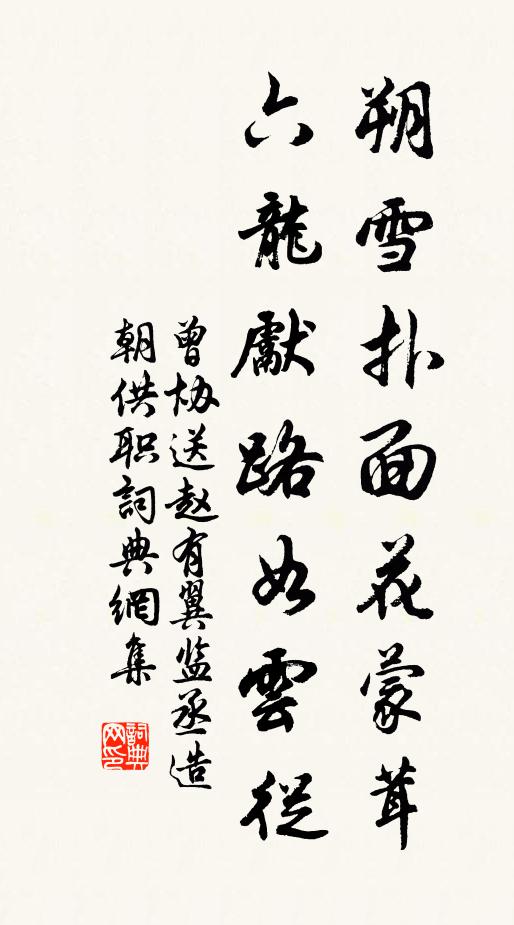 朔雪扑面花蒙茸
六龍獻路如雲從
曾协送赵有翼监丞造
朝供职詞典網集
詞典
网印